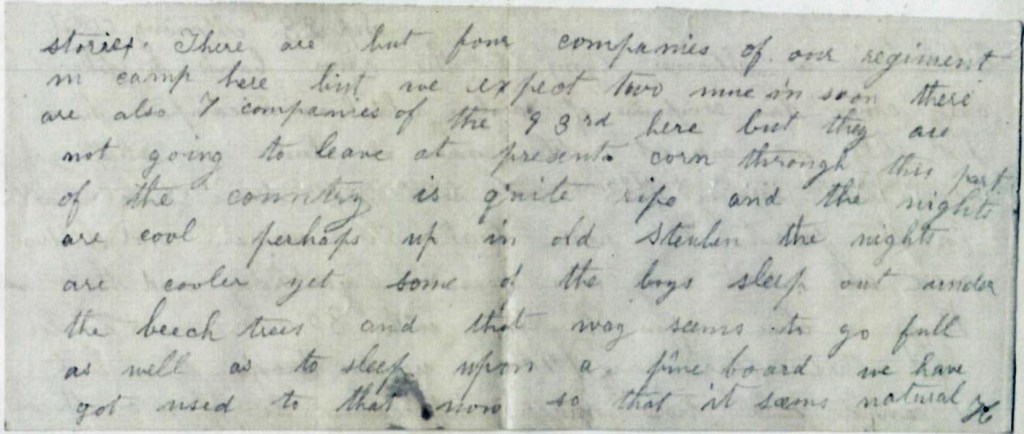 stories. There are but four companies of our regiment
in camp here but we expect two more in soon there
are also 7 companies of the 93rd here but they are
not going to leave at present. corn through this part
of the country is quite ripe and the nights
are cool perhaps up in old Steuben the nights
are cooler yet some of the boys sleep out under
the beech trees and that way seems to go full
as well as to sleep upon a pine board we have
got used to that now so that it seems natural